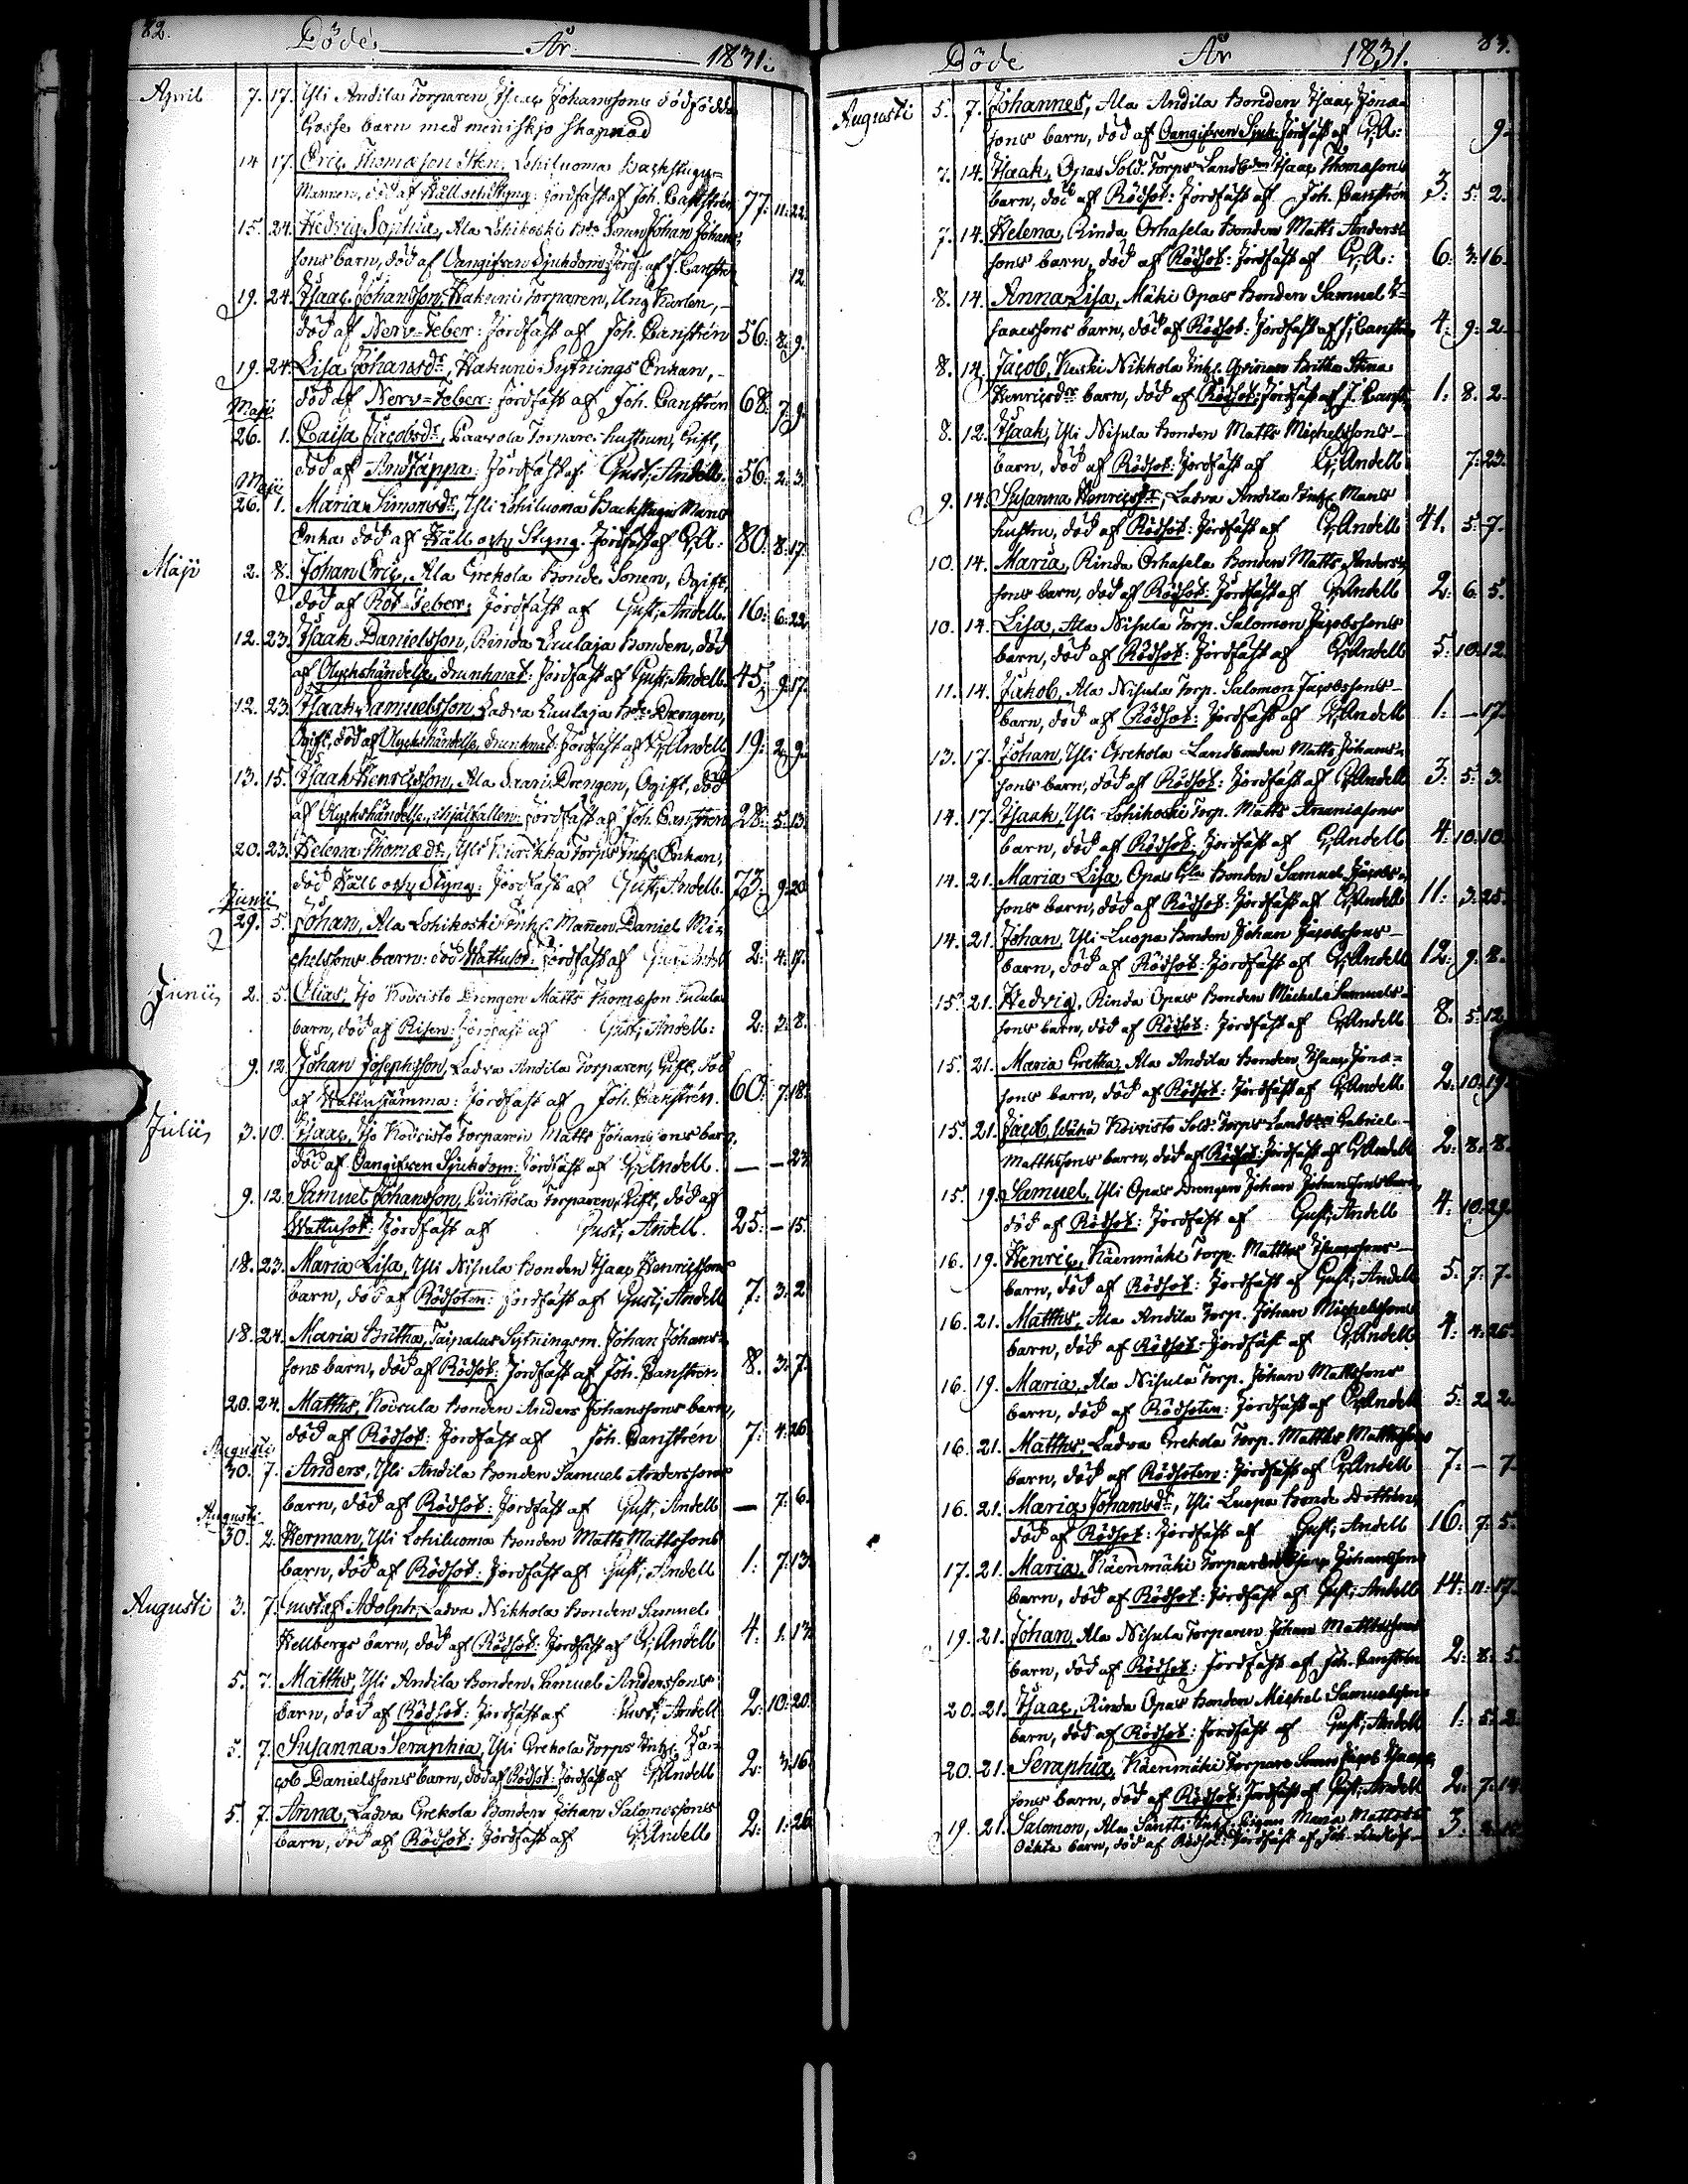 82.
Döde År 1831.
April 7. 17. Yli Andila Torparen Isaac Johanssons dödfödda
Gosse barn med menniskjo skapnad
14 17. Eric Thomæson Sten, Lohiluoma Backstugu=
Mannen, död af Håll och Styng: Jordfäst af Joh. Canstrén 77: 11: 22.
15. 24. Hedvig Sophia, Ala Lohikoski Bde Sonen Johan Johans
sons barn, död af Oangifven Sjukdom: Jordf. af J. Canstrén 12.
19. 24. Isaac Johansson, Hakuni Torparen, Ung Karlen,
död af Nerv=Feber: Jordfäst af Joh. Canstrén 56: 8: 9.
19. 24. Lisa Johansdr, Hakuni Sytnings Enkan,
död af Nerv=Feber: Jordfäst af Joh. Canstrén 68 7: 9.
Maji
26. 1. Caisa Jacobsdr, Paavola Torpare hustrun, Gift,
död af Andtäppa: Jordfäst af Gust; Andell. 56: 2: 3.
Maji
26. 1. Maria Simonsdr, Yli Lohiluoma Backstugu Mans
Enka död af Håll och Styng. Jordfäst af G;A: 80: 8: 17.
Maji 2. 8. Johan Eric, Ala Grekola Bonde Sonen, Ogift,
död af Röt-Feber: Jordfäst af Gust; Andell. 16: 6: 22
12. 23. Isaak Danielsson, Rinda Luulaja Bonden, död
af Olyckshändelse, drunknat: Jordfäst af Gust; Andell. 45: 9: 17.
12. 23 Isaak Samuelsson, Ladva Luulaja Bde Drengen,
Ogift, död af Olyckshändelse, drunknat: Jordfäst af G;Andell 19: 2: 9.
13. 15. Isaak Henricsson, Ala Drengen, Ogift, död
af Olyckshändelse, ihjälfallen: Jordfäst af Joh. Canstrén 28: 5: 13.
20. 23. Helena Thomædr, Yli Kurikka Torps Inh. Enkan,
död Håll och Styng: Jordfäst af Gust; Andell. 73: 9: 20
Junii
29. 5. Johan, Ala Lohikoski Inh. Mannen Daniel Mi=
chelsons barn: död Wattusot: Jordfäst af Gust; Andell 2: 4: 17.
Junii 2. 5. Elias, Iso Koivisto Drengen Matts Thomæson
barn, död af Risen: Jordfäst af Gust; Andell: 2: 2: 8.
9. 12. Johan Josephsson, Ladva Andila Torparen, Gift, död
af Watten stämma: Jordfäst af Joh. Canstrén. 60: 7: 18.
Julii 3. 10. Isaac, Iso Koivisto Torparen Matts Johanssons barn,
död af Oangifven Sjukdom: Jordfäst af G;Andell. — — 23
9. 12. Samuel Johansson, Torparen, Gift, död af
Wattusot: Jordfäst af Gust; Andell. 25: — 15.
18. 23. Maria Lisa, Yli Nisula Bonden Isaac Henricssons
barn, död af Rödsoten: Jordfäst af Gust; Andell 7: 3: 2
18. 24. Maria Britha, Taipalus Sytningsm. Johan Johans=
sons barn, död af Rödsot: Jordfäst af Joh. Canstrén 8. 3: 7.
20. 24. Matths, Koivula Bonden Anders Johanssons barn,
död af Rödsot: Jordfäst af Joh. Canstrén 7: 4: 26
Augusti
30. 7. Anders, Yli Andila Bonden Samuel Anderssons
barn, död af Rödsot: Jordfäst af Gust; Andell — 7: 6.
Augusti
30. 2. Herman, Yli Lohiluoma Bonden Matts Mattssons
barn, död af Rödsot: Jordfäst af Gust; Andell 1: 7: 13
Augusti 3. 7. Gustaf Adolph, Ladva Nikkola Bonden Samuel
Hellbergs barn, död af Rödsot: Jordfäst af G;Andell 4: 1: 13
5. 7. Matths, Yli Andila Bonden Samuel Anderssons
barn, död af Rödsot: Jordfäst af Gust; Andell 2: 10: 20
5. 7. Susanna Seraphia, Yli Grekola Torps Inh. Ja=
cob Danielssons barn, död af Rödsot: Jordfäst af G;Andell 2: 3: 16.
5. 7. Anna, Ladva Grekola Bonden Johan Salomossons
barn, död af Rödsot: Jordfäst af G;Andell 2: 1: 26
83.
Döde År 1831.
Augusti 5. 7. Johannes, Ala Andila Bonden Isaac Jona=
sons barn, död af Oangifven Sjuk: Jordfäst af G;A: 9.
7. 14. Isaak, Opas Sold. Torps Landbden Isaac Thomasons
barn, död af Rödsot: Jordfäst af Joh. Canstrén 3: 5: 2.
7. 14. Helena, Rinda Orhasela Bonden Matts Anders
sons barn, död af Rödsot: Jordfäst af G;A: 6: 3: 16.
8. 14. Anna Lisa, Mäki Opas Bonden Samuel I=
saacssons barn, död af Rödsot: Jordfäst af J; Canstrén 4: 9: 2
8. 14. Jacob, Keski Nikkola Inh. Qvinnan Britta Stina
Henricsdrs barn, död af Rödsot: Jordfäst af J. Canst. 1: 8. 2.
8. 12. Isaak, Yli Nisula Bonden Matts Michelssons
barn, död af Rödsot: Jordfäst af G;Andell 7: 23.
9. 14. Susanna Henricsdr, Ladva Andila Inh. Mans
hustru, död af Rödsot: Jordfäst af G;Andell 41. 5: 7.
10. 14. Maria, Rinda Orhasela Bonden Matts Anders
sons barn, död af Rödsot: Jordfäst af G;Andell 2: 6: 5.
10. 14. Lisa, Ala Nisula Torp. Salomon Jacobssons
barn, död af Rödsot: Jordfäst af G;Andell 5: 10: 12
11. 14. Jakob, Ala Nisula Torp. Salomon Jacobssons
barn, död af Rödsot: Jordfäst af G;Andell 1: — 17.
13. 17. Johan, Yli Grekola Landbonden Matts Johans=
sons barn, död af Rödsot: Jordfäst af G;Andell 3. 5: 3.
14. 17. Isaak, Yli Lohikoski Torp. Matts Ananiasons
barn, död af Rödsot: Jordfäst af G;Andell 4: 10: 10.
14. 21. Maria Lisa, Opas Bonden Samuel Jacobs=
sons barn, död af Rödsot: Jordfäst af G;Andell 11: 3: 25.
14. 21. Johan, Yli Luopa Bonden Johan Jacobssons
barn, död af Rödsot: Jordfäst af G;Andell 12: 9: 8.
15. 21. Hedvig, Rinda Opas Bonden Michel Samuels=
sons barn, död af Rödsot: Jordfäst af G;Andell 8. 5: 12
15. 21. Maria Gretha, Ala Andila Bonden Isaac Jona=
sons barn, död af Rödsot: Jordfäst af G;Andell 2: 10: 19.
15. 21. Jacob, Koivisto Sold. Torps Landbden Gabriel
Matthssons barn, död af Rödsot: Jordfäst af G;Andell 2: 8: 8.
15. 19. Samuel, Yli Opas Drengen Johan Johanssons barn
död af Rödsot: Jordfäst af Gust; Andell 4: 10: 29.
16. 19. Henric, Käenmäki Torp. Matths Isaacssons
barn, död af Rödsot: Jordfäst af Gust; Andell 5: 7: 7.
16. 21. Matths, Ala Andila Torp. Johan Michelssons
barn, död af Rödsot: Jordfäst af G;Andell 4: 4: 25.
16. 19. Maria, Ala Nisula Torp. Johan Mattssons
barn, död af Rödsoten: Jordfäst af G;Andell 5: 2: 2.
16. 21. Matths, Ladva Grekola Torp. Matths Matthssons
barn, död af Rödsoten: Jordfäst af G;Andell 7: — 7
16. 21. Maria Johansdr, Yli Luopa Bonde Dottren,
död af Rödsot: Jordfäst af Gust; Andell 16: 7: 5.
17. 21. Maria, Käenmäki Torparen Isaac Johanssons
barn, död af Rödsot: Jordfäst af Gust; Andell 14: 11: 17.
19. 21. Johan, Ala Nisula Torparen Johan Matthssons
barn, död af Rödsot: Jordfäst af Joh. Canstrén 2: 8: 5.
20. 21. Isaac, Rinda Opas Bonden Michel Samuelssons
barn, död af Rödsot: Jordfäst af Gust; Andell 1: 5: 2.
20. 21. Seraphia, Käenmäki Torpare Sonen Jacob Isaacs
sons barn, död af Rödsot: Jordfäst af Gust; Andell 2: 7: 14
19. 21. Salomon, Ala Säntti Inh. Pigan Maria Mattsdr
Oäkta barn, död af Rödsot: Jordfäst af 3: